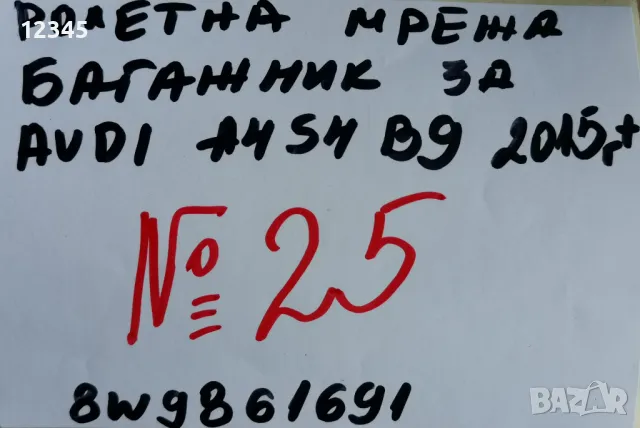 12345
РОЛЕТНА МРЕЖА
БАГАЖНИК ЗА
AUDI A4 S4 B9 2015г+
№ 25
8W9861691
BAZAR